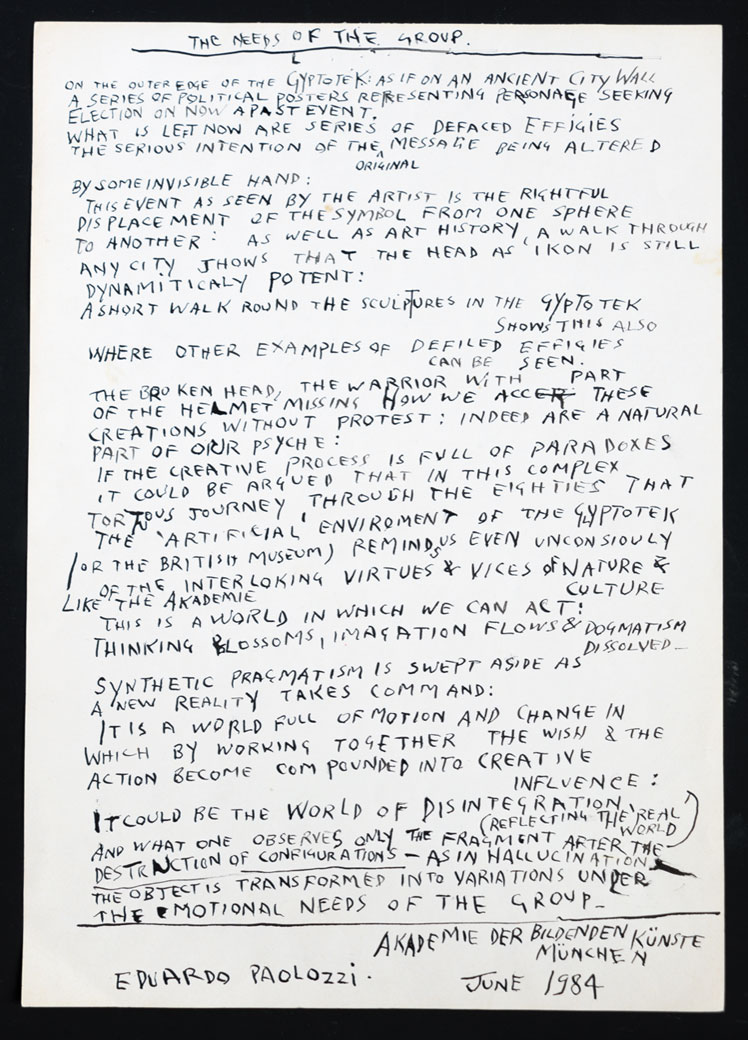 THE NEEDS OF THE GROUP.
ON THE OUTER EDGE OF THE GYPTOTEK: AS IF ON AN ANCIENT CITY WALL
A SERIES OF POLITICAL POSTERS REPRESENTING PERSONAGE SEEKING
ELECTION ON NOW A PAST EVENT.
WHAT IS LEFT NOW ARE SERIES OF DEFACED EFFIGIES
THE SERIOUS INTENTION OF THE ORIGINAL MESSAGE BEING ALTERED
BY SOME INVISIBLE HAND:
THIS EVENT AS SEEN BY THE ARTIST IS THE RIGHTFUL
DISPLACEMENT OF THE SYMBOL FROM ONE SPHERE
TO ANOTHER: AS WELL AS ART HISTORY, A WALK THROUGH
ANY CITY SHOWS THAT THE HEAD AS IKON IS STILL
DYNAMITICALY POTENT:
A SHORT WALK ROUND THE SCULPTURES IN THE GYPTOTEK
SHOWS THIS ALSO
WHERE OTHER EXAMPLES OF DEFILED EFFIGIES
CAN BE SEEN.
THE BROKEN HEAD, THE WARRIOR WITH PART
OF THE HELMET MISSING HOW WE ACCEPT THESE
CREATIONS WITHOUT PROTEST: INDEED ARE A NATURAL
PART OF OUR PSYCHE:
IF THE CREATIVE PROCESS IS FULL OF PARADOXES
IT COULD BE ARGUED THAT IN THIS COMPLEX
TORTOUS JOURNEY THROUGH THE EIGHTIES THAT
THE 'ARTIFICIAL' ENVIROMENT OF THE GYPTOTEK
(OR THE BRITISH MUSEUM) REMINDS US EVEN UNCONSIOUSLY
OF THE INTERLOKING VIRTUES & VICES OF NATURE &
CULTURE
LIKE THE AKADEMIE
THIS IS A WORLD IN WHICH WE CAN ACT:
THINKING BLOSSOMS, IMAGATION FLOWS & DOGMATISM
DISSOLVED_
SYNTHETIC PRAGMATISM IS SWEPT ASIDE AS
A NEW REALITY TAKES COMMAND:
IT IS A WORLD FULL OF MOTION AND CHANGE IN
WHICH BY WORKING TOGETHER THE WISH & THE
ACTION BECOME COMPOUNDED INTO CREATIVE
INFLUENCE:
IT COULD BE THE WORLD OF DISINTEGRATION,
(REFLECTING THE REAL
WORLD
AND WHAT ONE OBSERVES ONLY THE FRAGMENT AFTER THE
DESTRUCTION OF CONFIGURATIONS – AS IN HALLUCINATION
THE OBJECT IS TRANSFORMED INTO VARIATIONS UNDER
THE EMOTIONAL NEEDS OF THE GROUP_
AKADEMIE DER BILDENDEN KÜNSTE
MÜNCHEN
EDUARDO PAOLOZZI. JUNE 1984